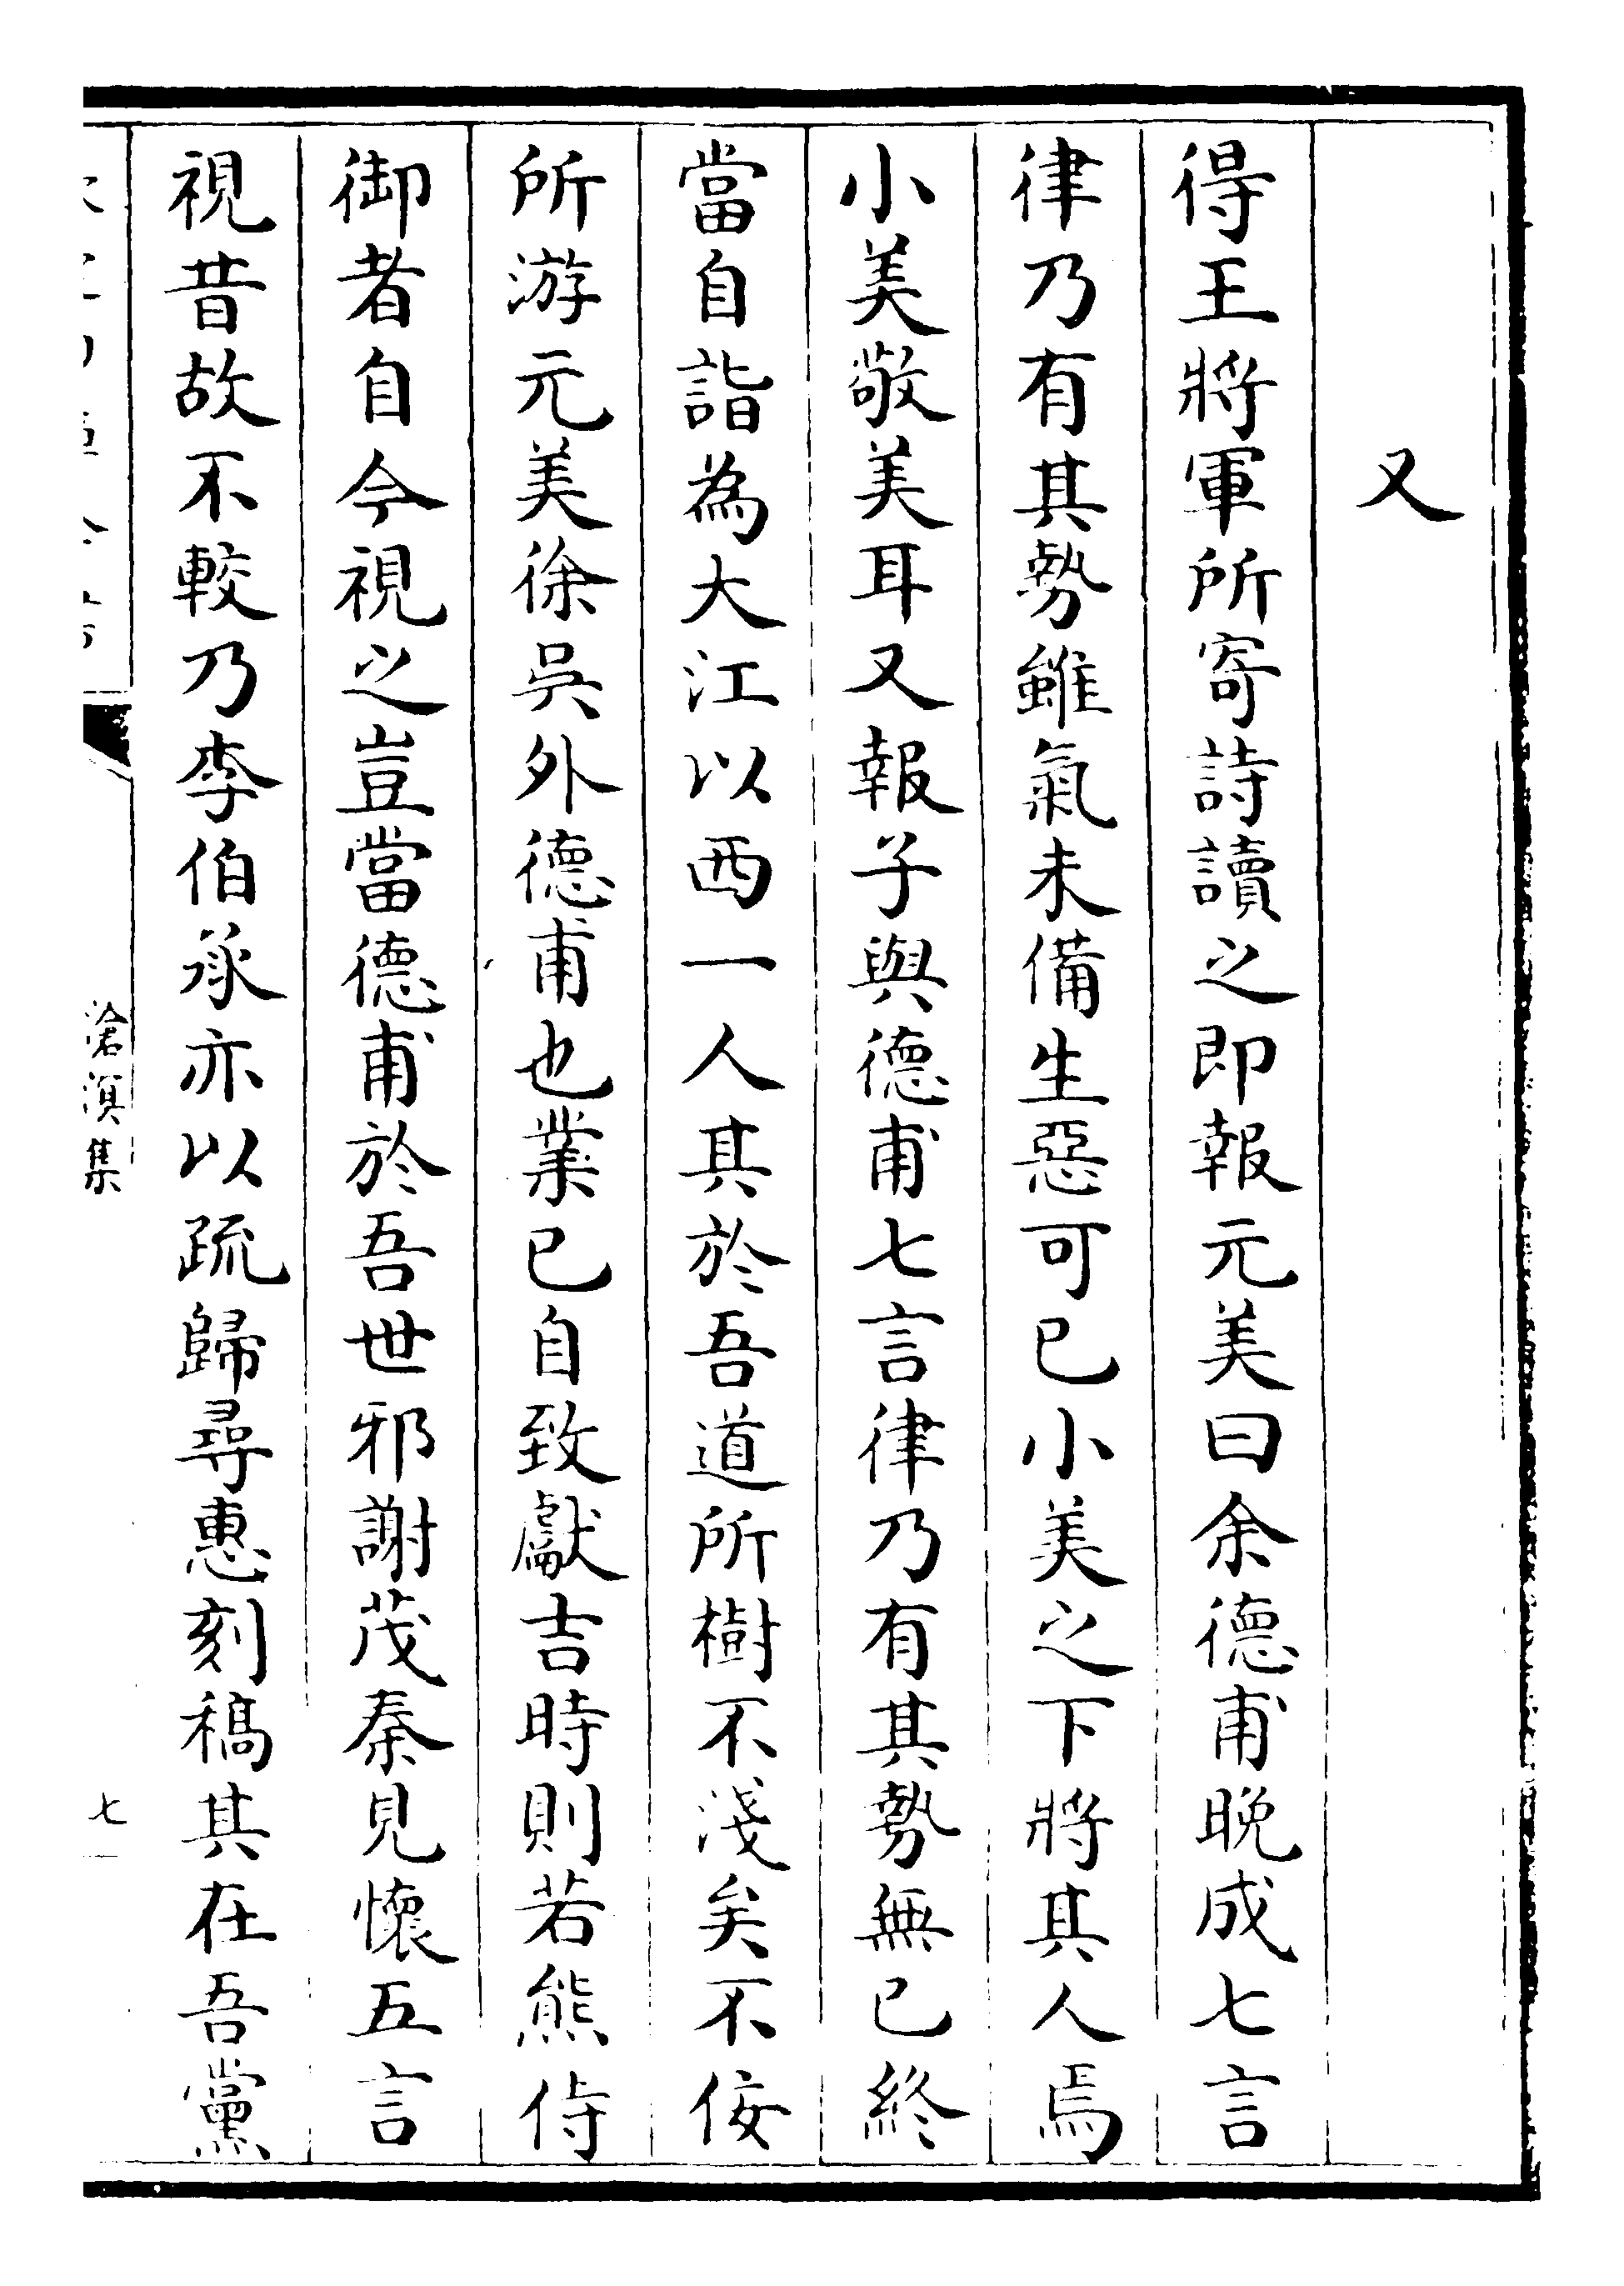 又
得王將軍所寄詩讀之即報元美曰余德甫晚成七言
律乃有其勢雖氣未備生惡可已小美之下將其人焉
小美敬美耳又報子與德甫七言律乃有其勢無已終
當自詣為大江以西一人其於吾道所樹不淺矣不佞
所游元美徐吳外德甫也業已自致獻吉時則若熊侍
御者自今視之豈當德甫於吾世邪謝茂秦見懷五言
視昔故不較乃李伯承亦以疏歸尋惠刻稿其在吾黨
滄溟集
七